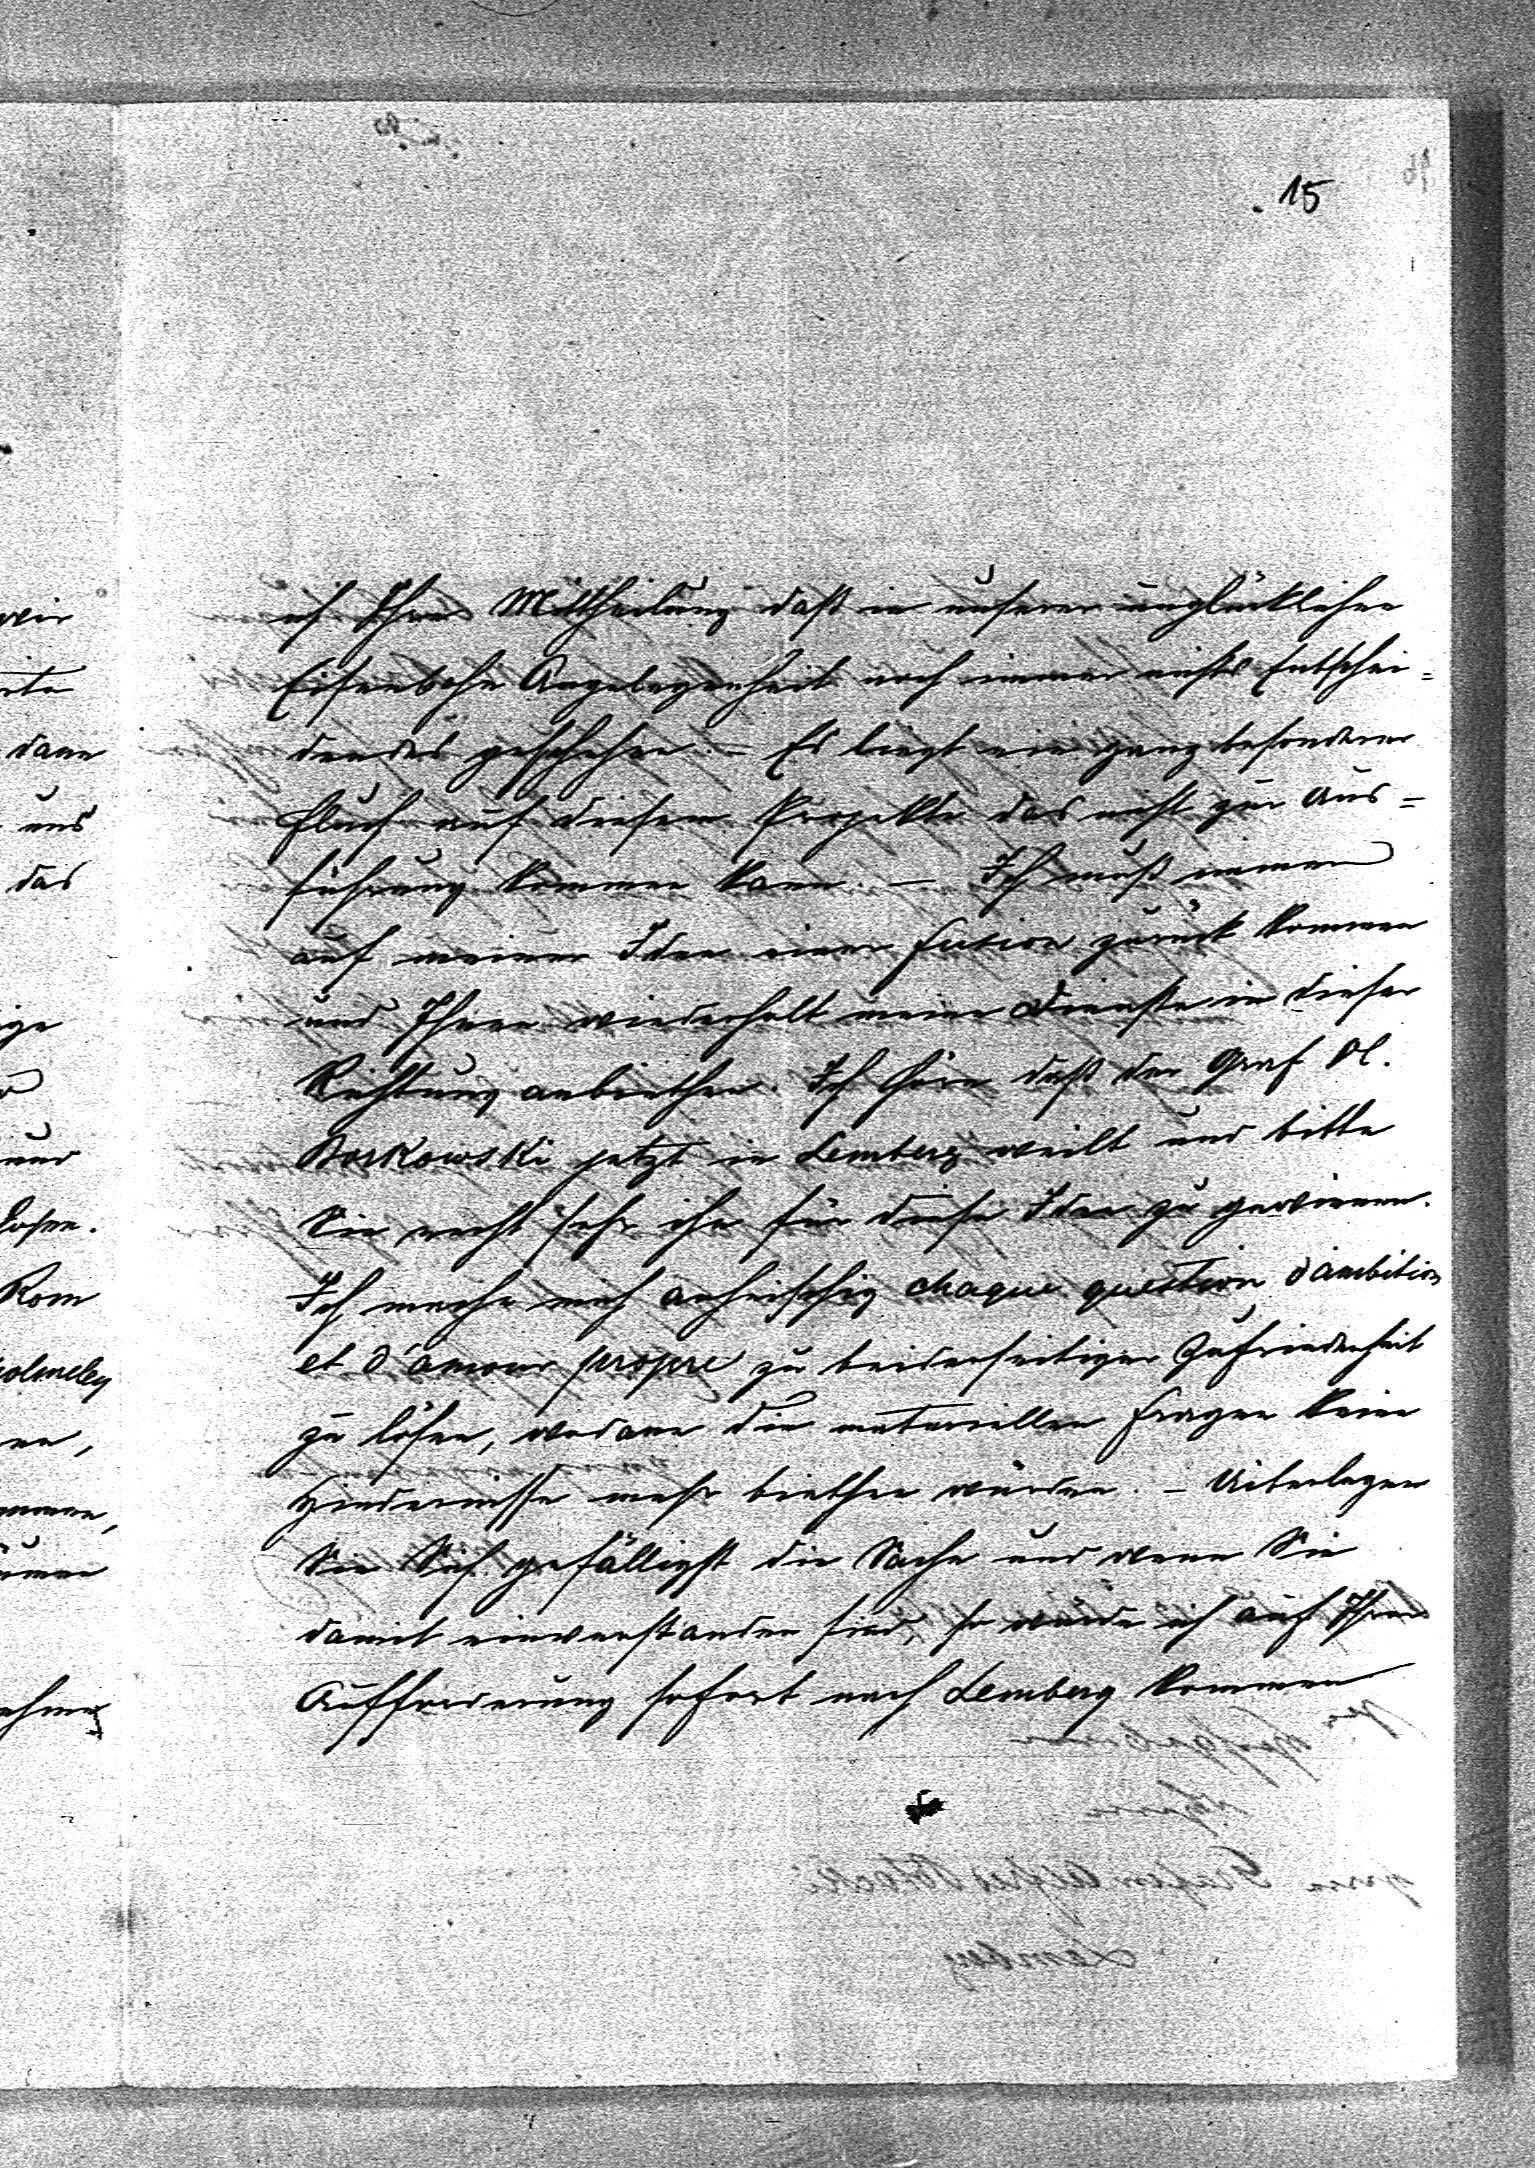 15
ich Ihre Mittheilung daß in unserer unglücklichen
Eisenbahn Angelegenheit noch immer nichts Entschei=
dendes geschehen. – Es liegt ein ganz besonderer
Fluch auf diesem Projekte das nicht zur Aus=
führung kommen kann. — Ich muß immer
auf meiner Idee einer Fusion zurück kommen
und Ihnen wiederholt meine Dienste in dieser
Richtung anbiethen. Ich höre daß der Graf Vl.
Borkowski jetzt in Lemberg weilt und bitte
Sie recht sehr ihn für diese Idee zu gewinnen.
Ich mache mich anheischig chaque question d'ambition
et d'amour propre zu beiderseitiger Zufriedenheit
zu lösen, wodann die materiellen Fragen keine
Hindernisse mehr biethen würden. – Uiberlegen
Sie Sich gefälligst die Sache und wenn Sie
damit einverstanden sind, so würde ich auf Ihre
Aufforderung sofort nach Lemberg kommen
wir
dann
uns
das
und
Rom